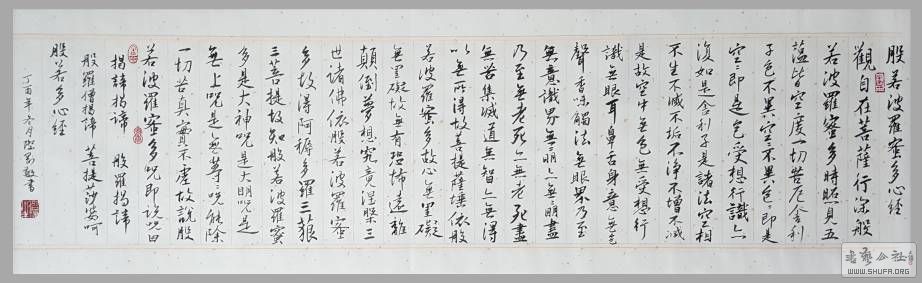 般若波羅蜜多心經
觀自在菩薩行深般
若波羅蜜多時照見五
蘊皆空度一切苦厄舍利
子色不異空〻不異色〻即是
空〻即是色受想行識亦
復如是舍利子是諸法空相
不生不滅不垢不淨不增不減
是故空中無色無受想行
識無眼耳鼻舌身意無色
聲香味觸法無眼界乃至
無意識界無〻明亦無〻明盡
乃至無老死亦無老死盡
無苦集滅道無智亦無得
以無所得故菩提薩埵依般
若波羅蜜多故心無罣礙
無罣礙故無有恐怖遠離
顛倒夢想究竟涅槃三
世諸佛依般若波羅蜜
多故得阿耨多羅三藐
三菩提故知般若波羅蜜
多是大神咒是大明咒是
無上咒是無等〻咒能除
一切苦真實不虛故說般
若波羅蜜多咒即說咒曰
揭諦揭諦 般羅揭諦
般羅僧揭諦 菩提莎婆呵
般若多心經
丁酉年六月 敬書
書藝公社
WWW.SHUFA.ORG